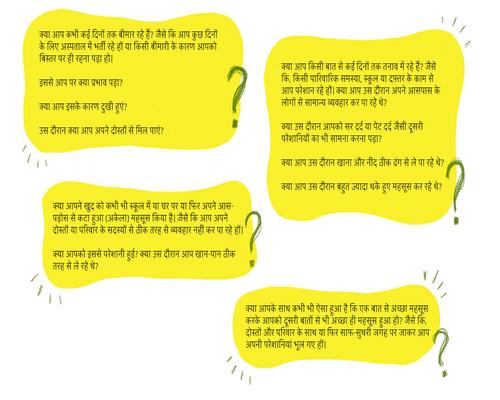 क्या आप कभी कई दिनों तक बीमार रहे हैं? जैसे कि आप कुछ दिनों
के लिए अस्पताल में भर्ती रहे हों या किसी बीमारी के कारण आपको
बिस्तर पर ही रहना पड़ा हो।
इससे आप पर क्या प्रभाव पड़ा?
क्या आप इसके कारण दुखी हुए?
उस दौरान क्या आप अपने दोस्तों से मिल पाएं?
क्या आप किसी बात से कई दिनों तक तनाव में रहे हैं? जैसे
कि, किसी पारिवारिक समस्या, स्कूल या दफ़्तर के काम से
आप परेशान रहे हों। क्या आप उस दौरान अपने आसपास के
लोगों से सामान्य व्यवहार कर पा रहे थे?
क्या उस दौरान आपको सर दर्द या पेट दर्द जैसी दूसरी
परेशानियां का भी सामना करना पड़ा?
क्या आप उस दौरान खाना और नींद ठीक ढंग से ले पा रहे थे?
क्या आप उस दौरान बहुत ज्यादा थके हुए महसूस कर रहे थे?
क्या आपने खुद को कभी भी स्कूल में या घर पर या फिर अपने आस-
पड़ोस से कटा हुआ (अकेला) महसूस किया है। जैसे कि आप अपने
दोस्तों या परिवार के सदस्यों से ठीक तरह से व्यवहार नहीं कर पा रहे हों।
क्या आपको इससे परेशानी हुई? क्या उस दौरान आप खान-पान ठीक
तरह से ले रहे थे?
क्या आपके साथ कभी भी ऐसा हुआ है कि एक बात से अच्छा महसूस
करके आपको दूसरी बातों से भी अच्छा ही महसूस हुआ हो? जैसे कि,
दोस्तों और परिवार के साथ या फिर साफ-सुथरी जगह पर जाकर आप
अपनी परेशानियां भूल गए हों।